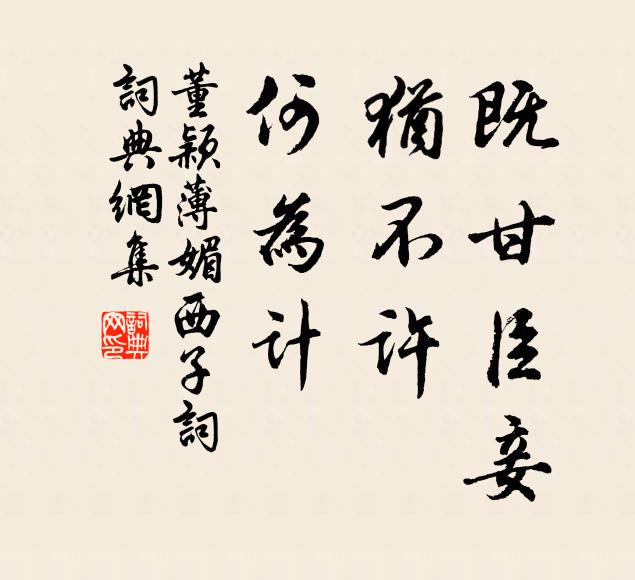 既甘臣妾
猶不許
何為計
董穎薄媚西子詞
詞典網集
詞典
网印